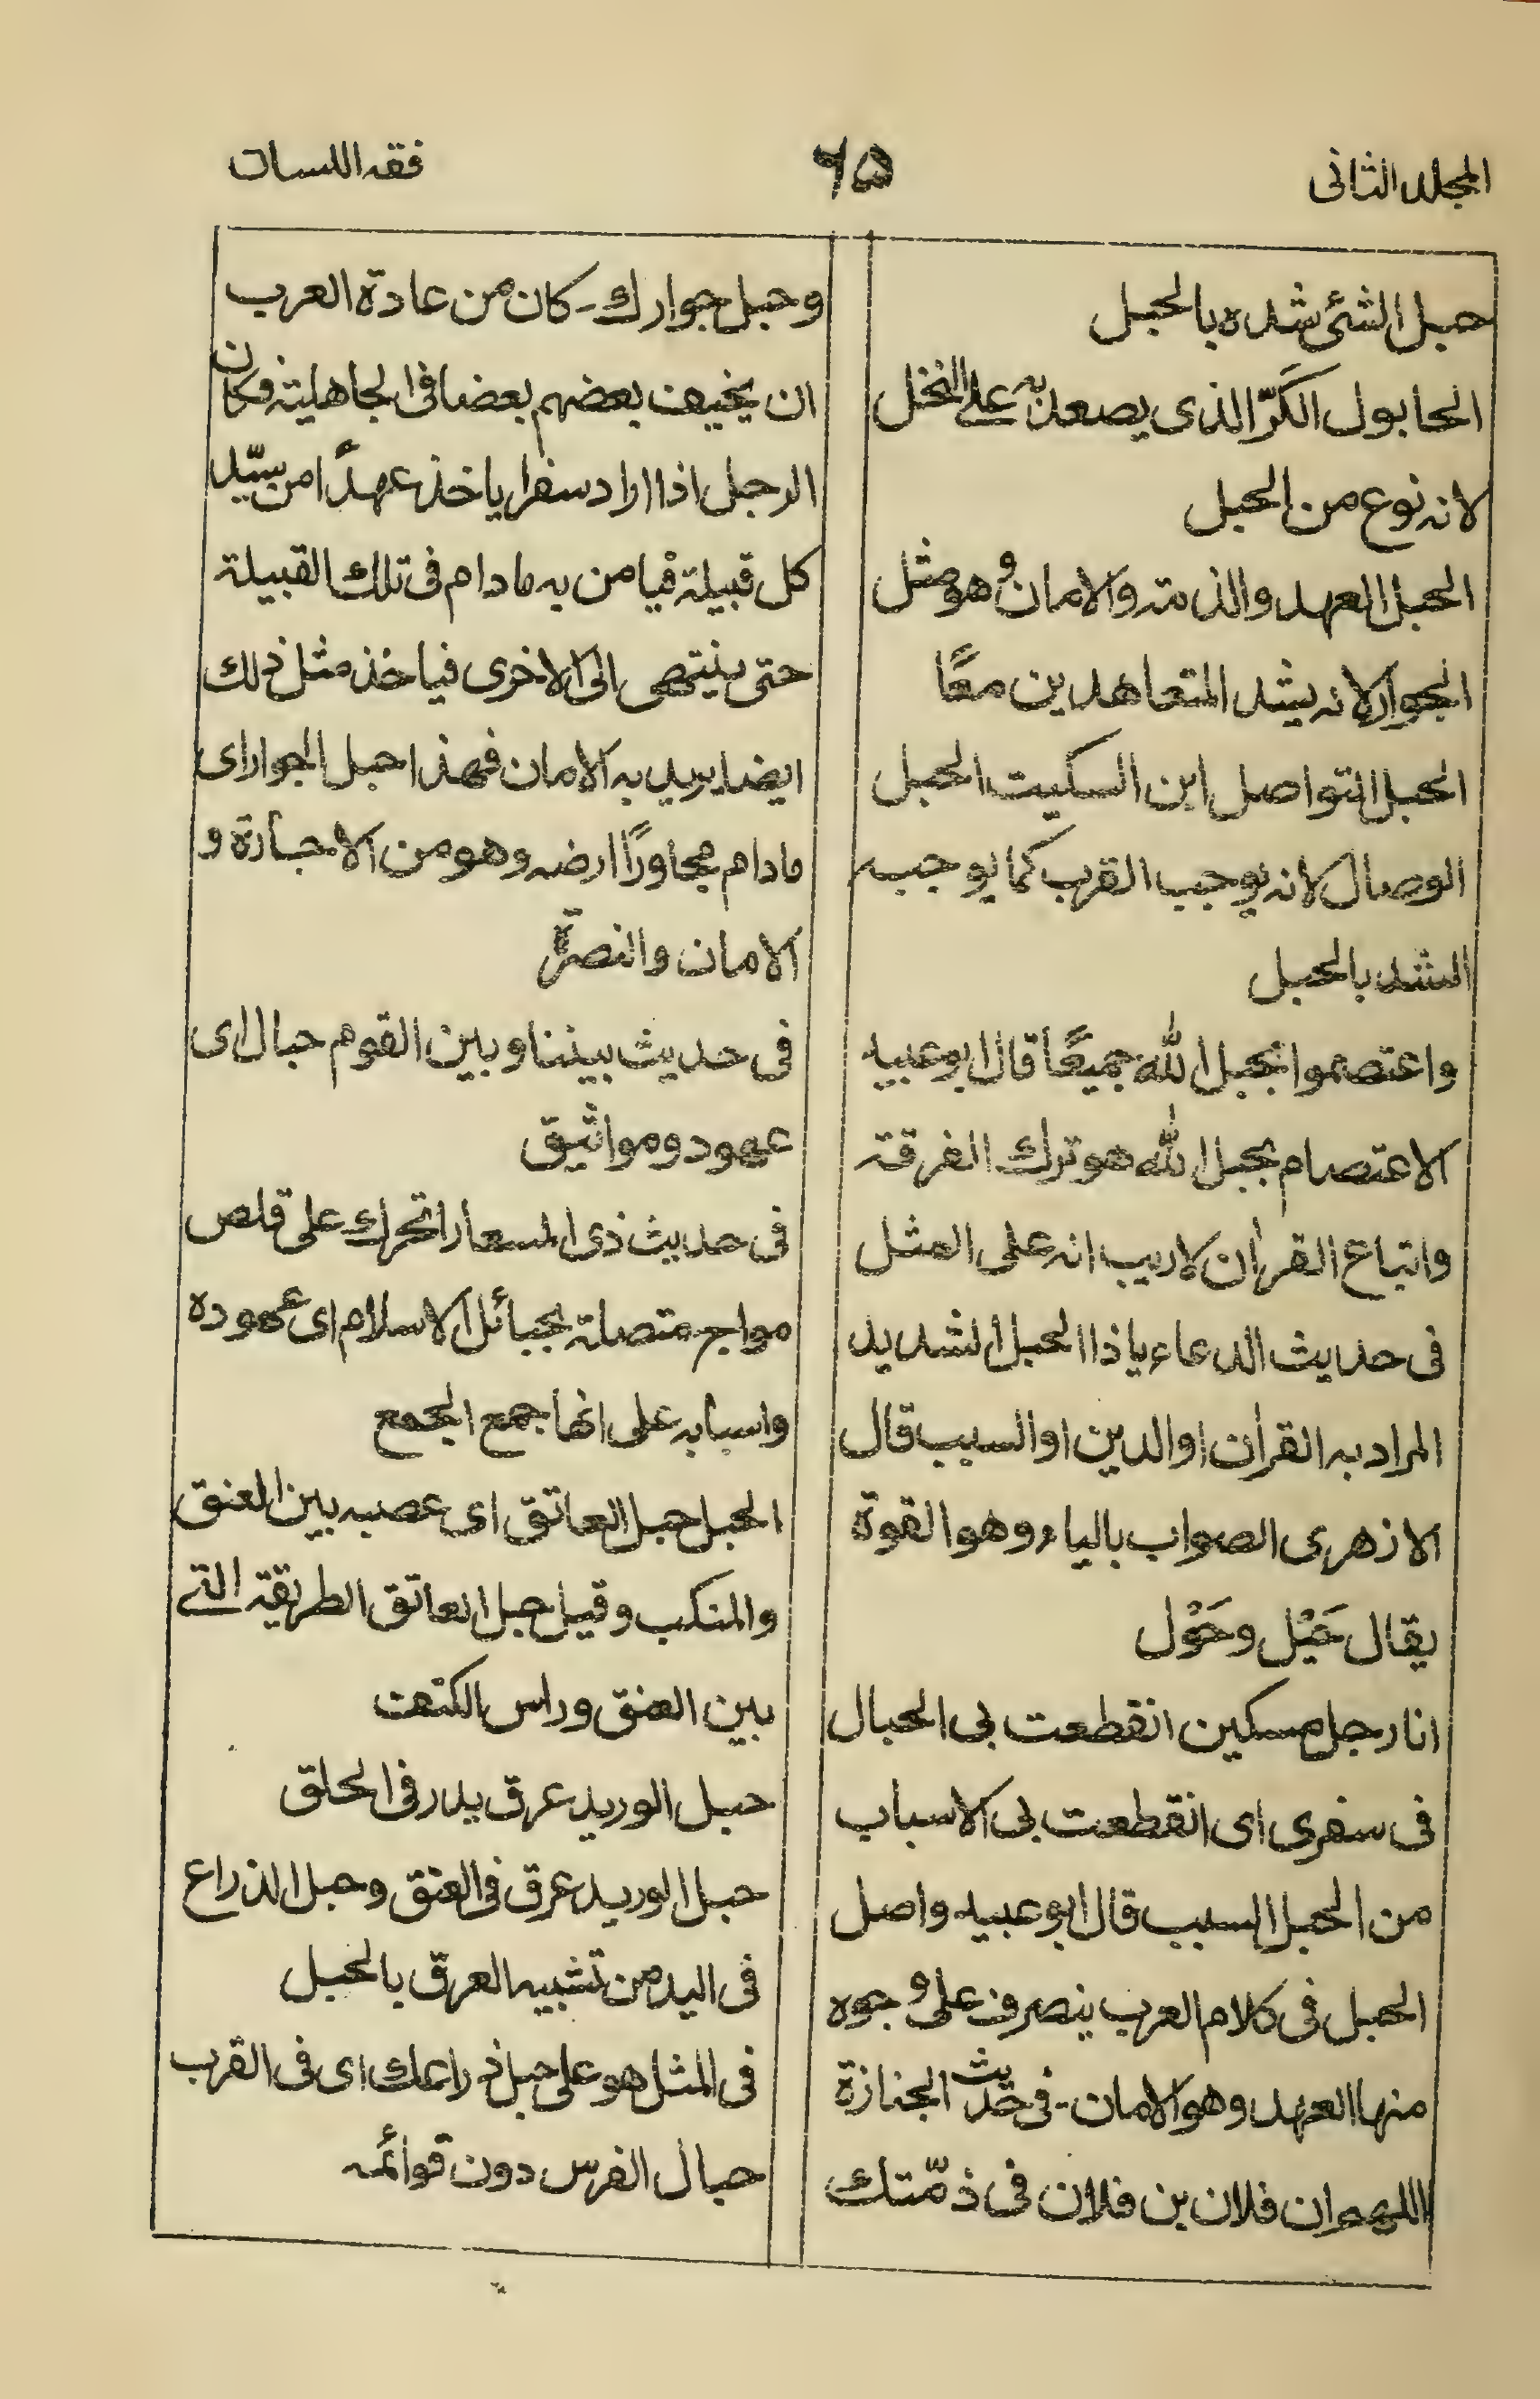 المجلد الثانى
٦٥
فقه اللسان
حبل الشئ شده بالحبل
الحابول الكَرّ الذى يصعد به على النخل
لانه نوع من الحبل
الحبل العهد والذمة والامان وهو مثل
الجوار لانه يشد المتعاهدين معًا
الحبل التواصل ابن السكيت الحبل
الوصال لانه يوجب القرب كما يوجبه
الشد بالحبل
واعتصموا بحبل الله جميعًا قال ابو عبيد
الاعتصام بحبل الله هو ترك الفرقة
واتباع القرأن لاريب انه على المثل
فى حديث الدعاء ياذا الحبل الشديد
المراد به القرأن او الدين او السبب قال
الازهرى الصواب بالياء وهو القوة
يقال حَيْل وحَوْل
انا رجل مسكين انقطعت بى الحبال
فى سفرى اى انقطعت بى الاسباب
من الحبل السبب قال ابو عبيد واصل
الحبل فى كلام العرب ينصرف على وجوه
منها العهد وهو الامان - فى حديث الجنازة
اللهم ان فلان بن فلان فى ذمّتك
وحبل جوارك - كان من عادة العرب
ان يخيف بعضهم بعضا فى الجاهلية فكان
الرجل اذا اراد سفرا ياخذ عهدًا من سيّد
كل قبيلة فيامن به مادام فى تلك القبيلة
حتى ينتهى الى الاخرى فياخذ مثل ذلك
ايضا يريد به الامان فهذا حبل الجوار اى
مادام مجاورًا ارضه وهو من الاجارة و
الامان والنصرة
فى حديث بيننا وبين القوم حبال اى
عهود ومواثيق
فى حديث ذى المسعار اتحرك على قلص
مواج متصلة بحبائل الاسلام اى عهوده
واسبابه على انها جمع الجمع
الحبل حبل العاتق اى عصبه بين العنق
والمنكب وقيل حبل العاتق الطريقة التى
بين العنق وراس الكتف
حبل الوريد عرق يدر فى الحلق
حبل الوريد عرق فى العنق وحبل الذراع
فى اليد من تشبيه العرق بالحبل
فى المثل هو على حبل ذراعك اى فى القرب
حبال الفرس دون قوائمه